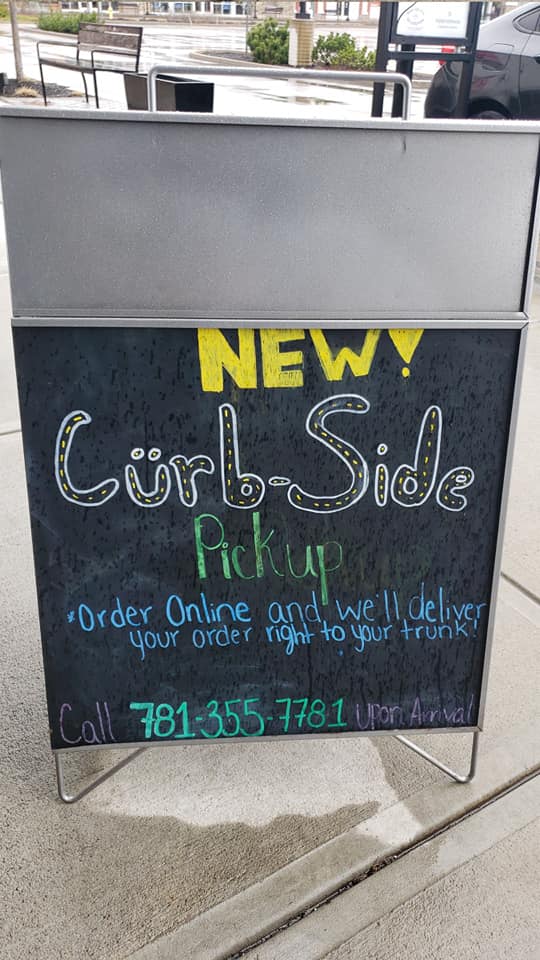 NEW!
Cürb-Side
Pickup
*Order Online and we'll deliver
your order right to your trunk!
Call 781-355-7781 Upon Arrival